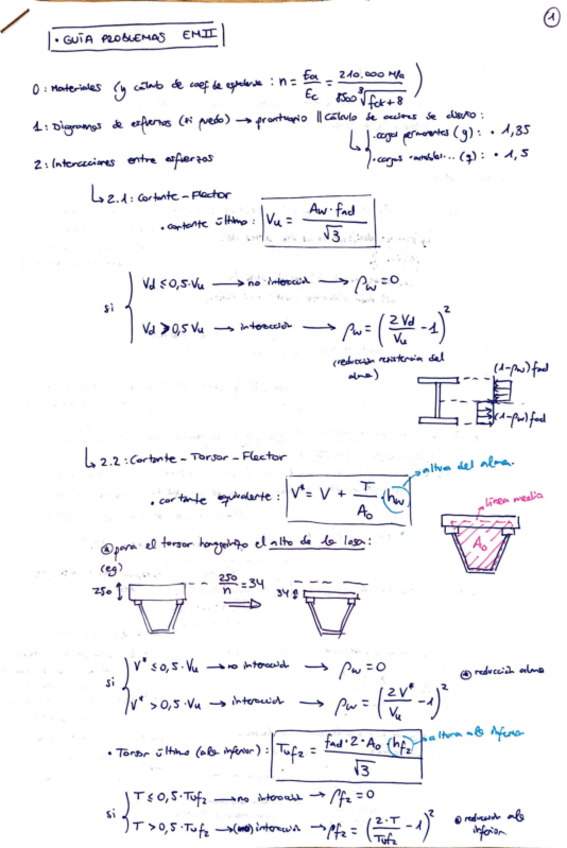 1
• GUÍA PROBLEMAS EMII
0: Materiales (y cálculo de coef de equivalencia: n = Ea/Ec = 210.000 MPa / 8500 ∛(fck+8))
1: Diagramas de esfuerzos (si puedo) → prontuario || Cálculo de acciones de diseño:
↳ .cargas permanentes (g): • 1,35
.cargas variables... (q): • 1,5
2: Interacciones entre esfuerzos
↳ 2.1: Cortante - Flector
• cortante último: Vu = Aw · fad / √3
si { Vd ≤ 0,5·Vu → no interacción → ρw = 0
Vd > 0,5 Vu → interacción → ρw = (2Vd/Vu - 1)²
(reducción resistencia del
alma)
(1-ρw) fad
(1-ρw) fad
↳ 2.2: Cortante - Torsor - Flector
altura del alma.
• cortante equivalente: V* = V + T/A₀ · hw
línea media
A₀
para el torsor homogeneizo el alto de la losa:
(eg)
250 ↕ 250/n = 34 ⇒ 34 ↕
si { V* ≤ 0,5·Vu → no interacción → ρw = 0
reducción alma
V* > 0,5·Vu → interacción → ρw = (2V*/Vu - 1)²
• Torsor último (ala inferior): Tuf₂ = fad·2·A₀·hf₂ / √3
altura ala inferior
si { T ≤ 0,5·Tuf₂ → no interacción → ρf₂ = 0
T > 0,5·Tuf₂ → interacción → ρf₂ = (2·T/Tuf₂ - 1)²
reducción ala
inferior